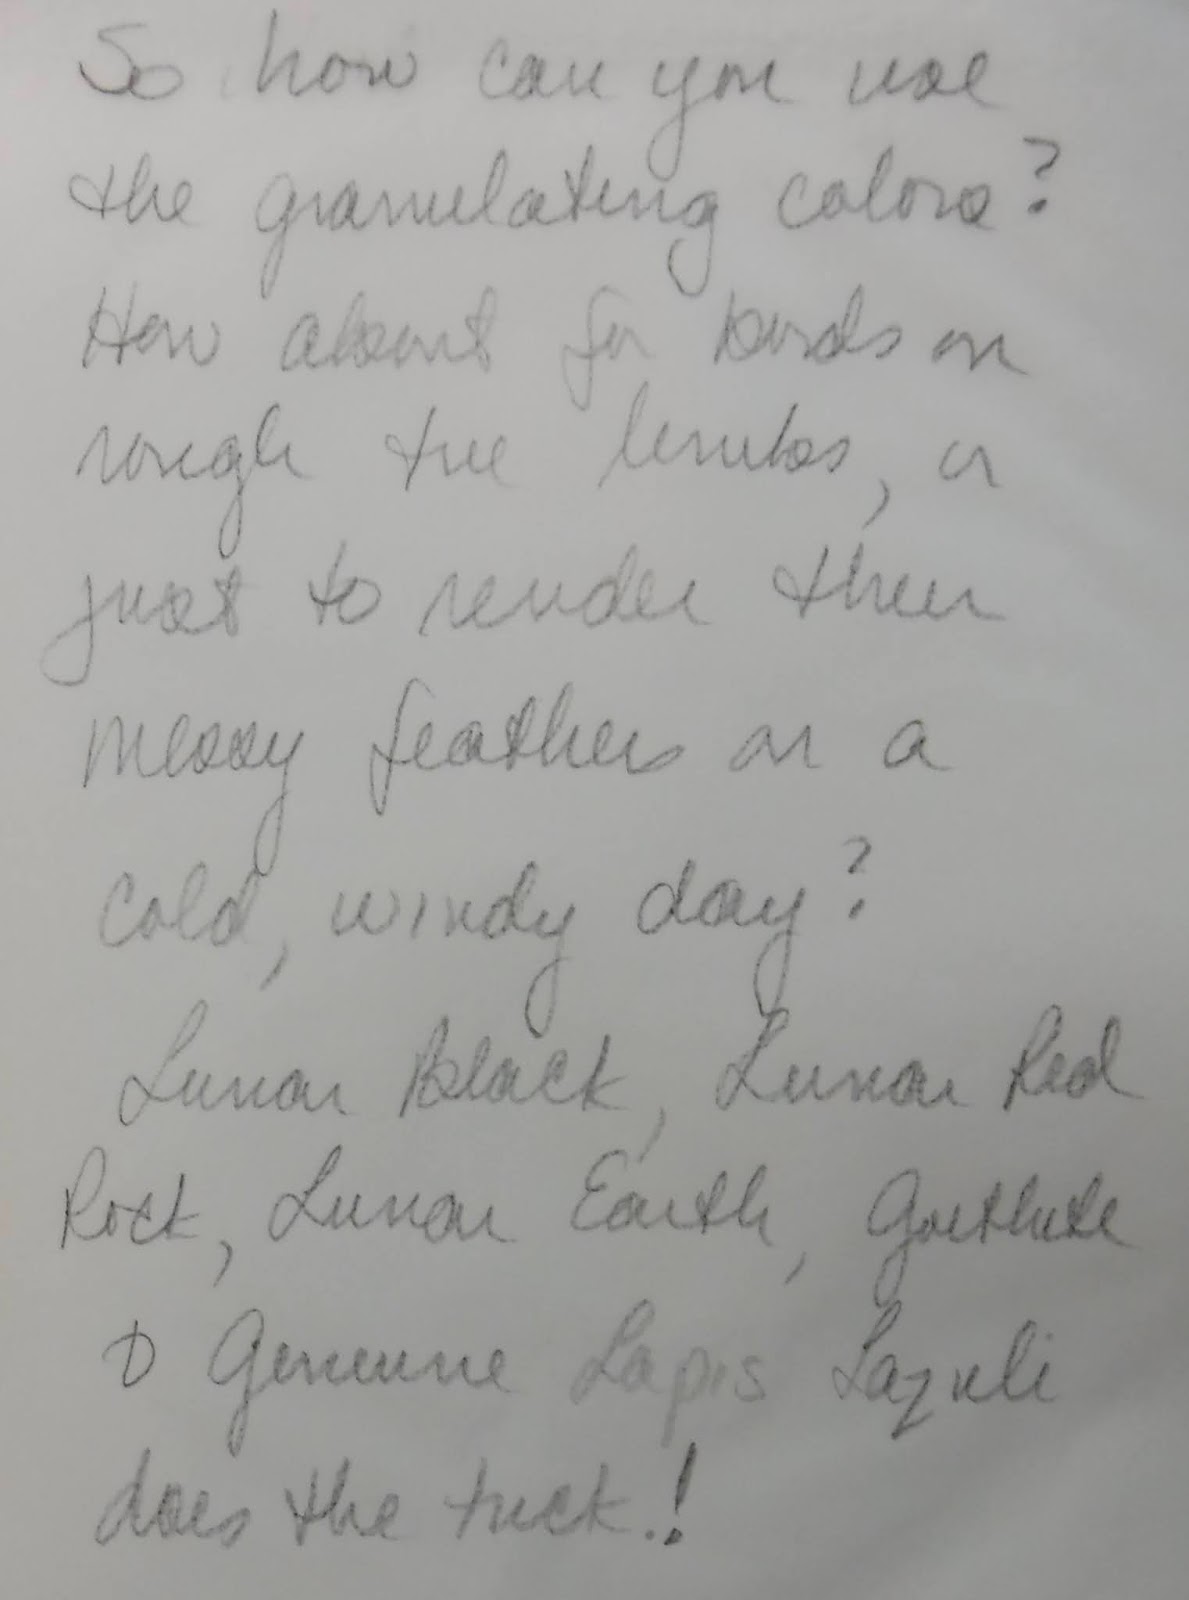 So how can you use
the granulating colors?
How about for birds on
rough tree limbs, or
just to render their
messy feathers on a
cold, windy day?
Lunar Black, Lunar Red
Rock, Lunar Earth, Goethite
& Genuine Lapis Lazuli
does the trick!